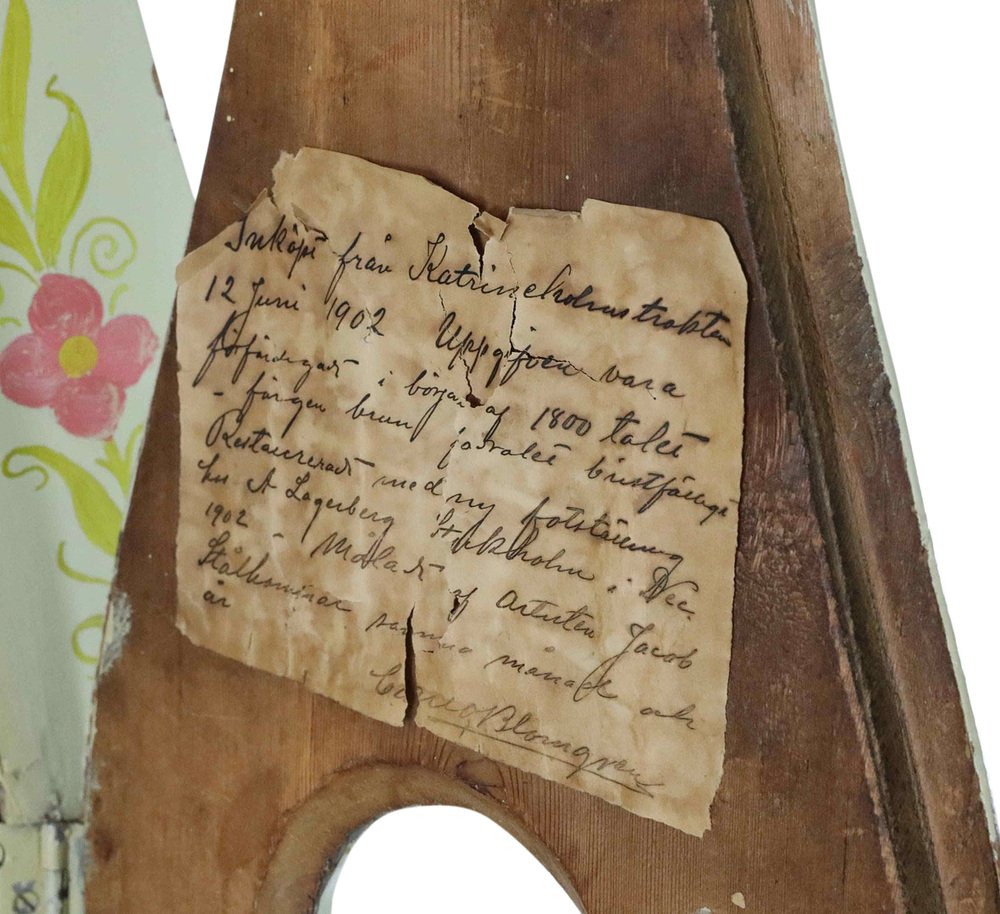 Inköpt från Katrineholmstrakten
12 Juni 1902 Uppgifven vara
förfärdigad i början af 1800 talet
- färgen brun, bristfällig
Restaurerad med ny fotställning
hos A Lagerberg Stockholm i Dec.
1902 - Målad af Artisten Jacob
samma månad och
år
Blomgren